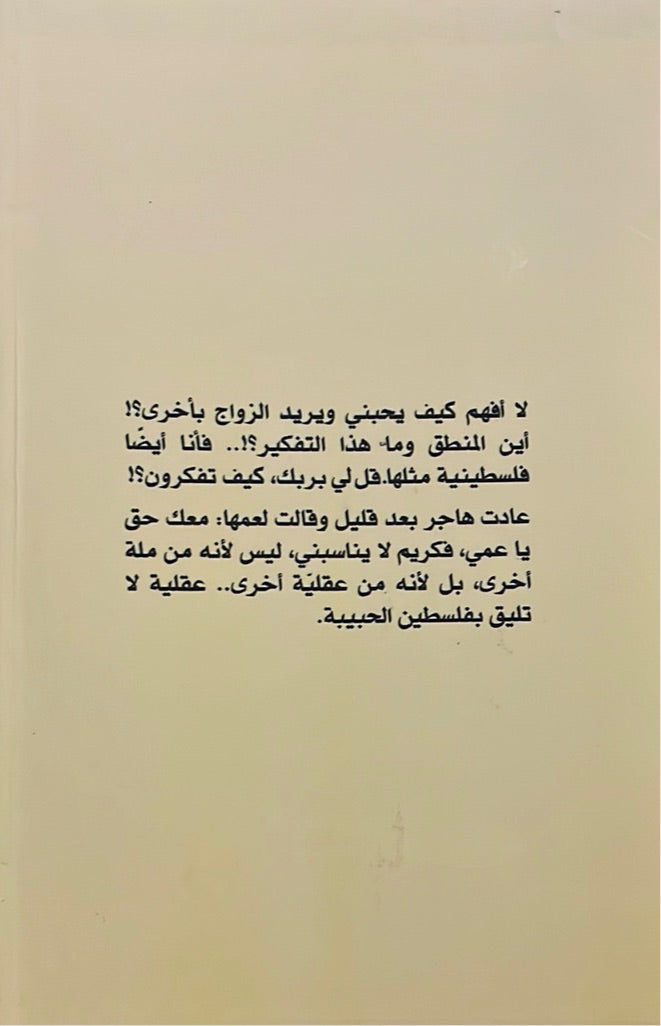 لا أفهم كيف يحبني ويريد الزواج بأخرى؟!
أين المنطق وما هذا التفكير؟!.. فأنا أيضًا
فلسطينية مثلها.قل لي بربك، كيف تفكرون؟!
عادت هاجر بعد قليل وقالت لعمها: معك حق
يا عمي، فكريم لا يناسبني، ليس لأنه من ملة
أخرى، بل لأنه من عقليّة أخرى.. عقلية لا
تليق بفلسطين الحبيبة.